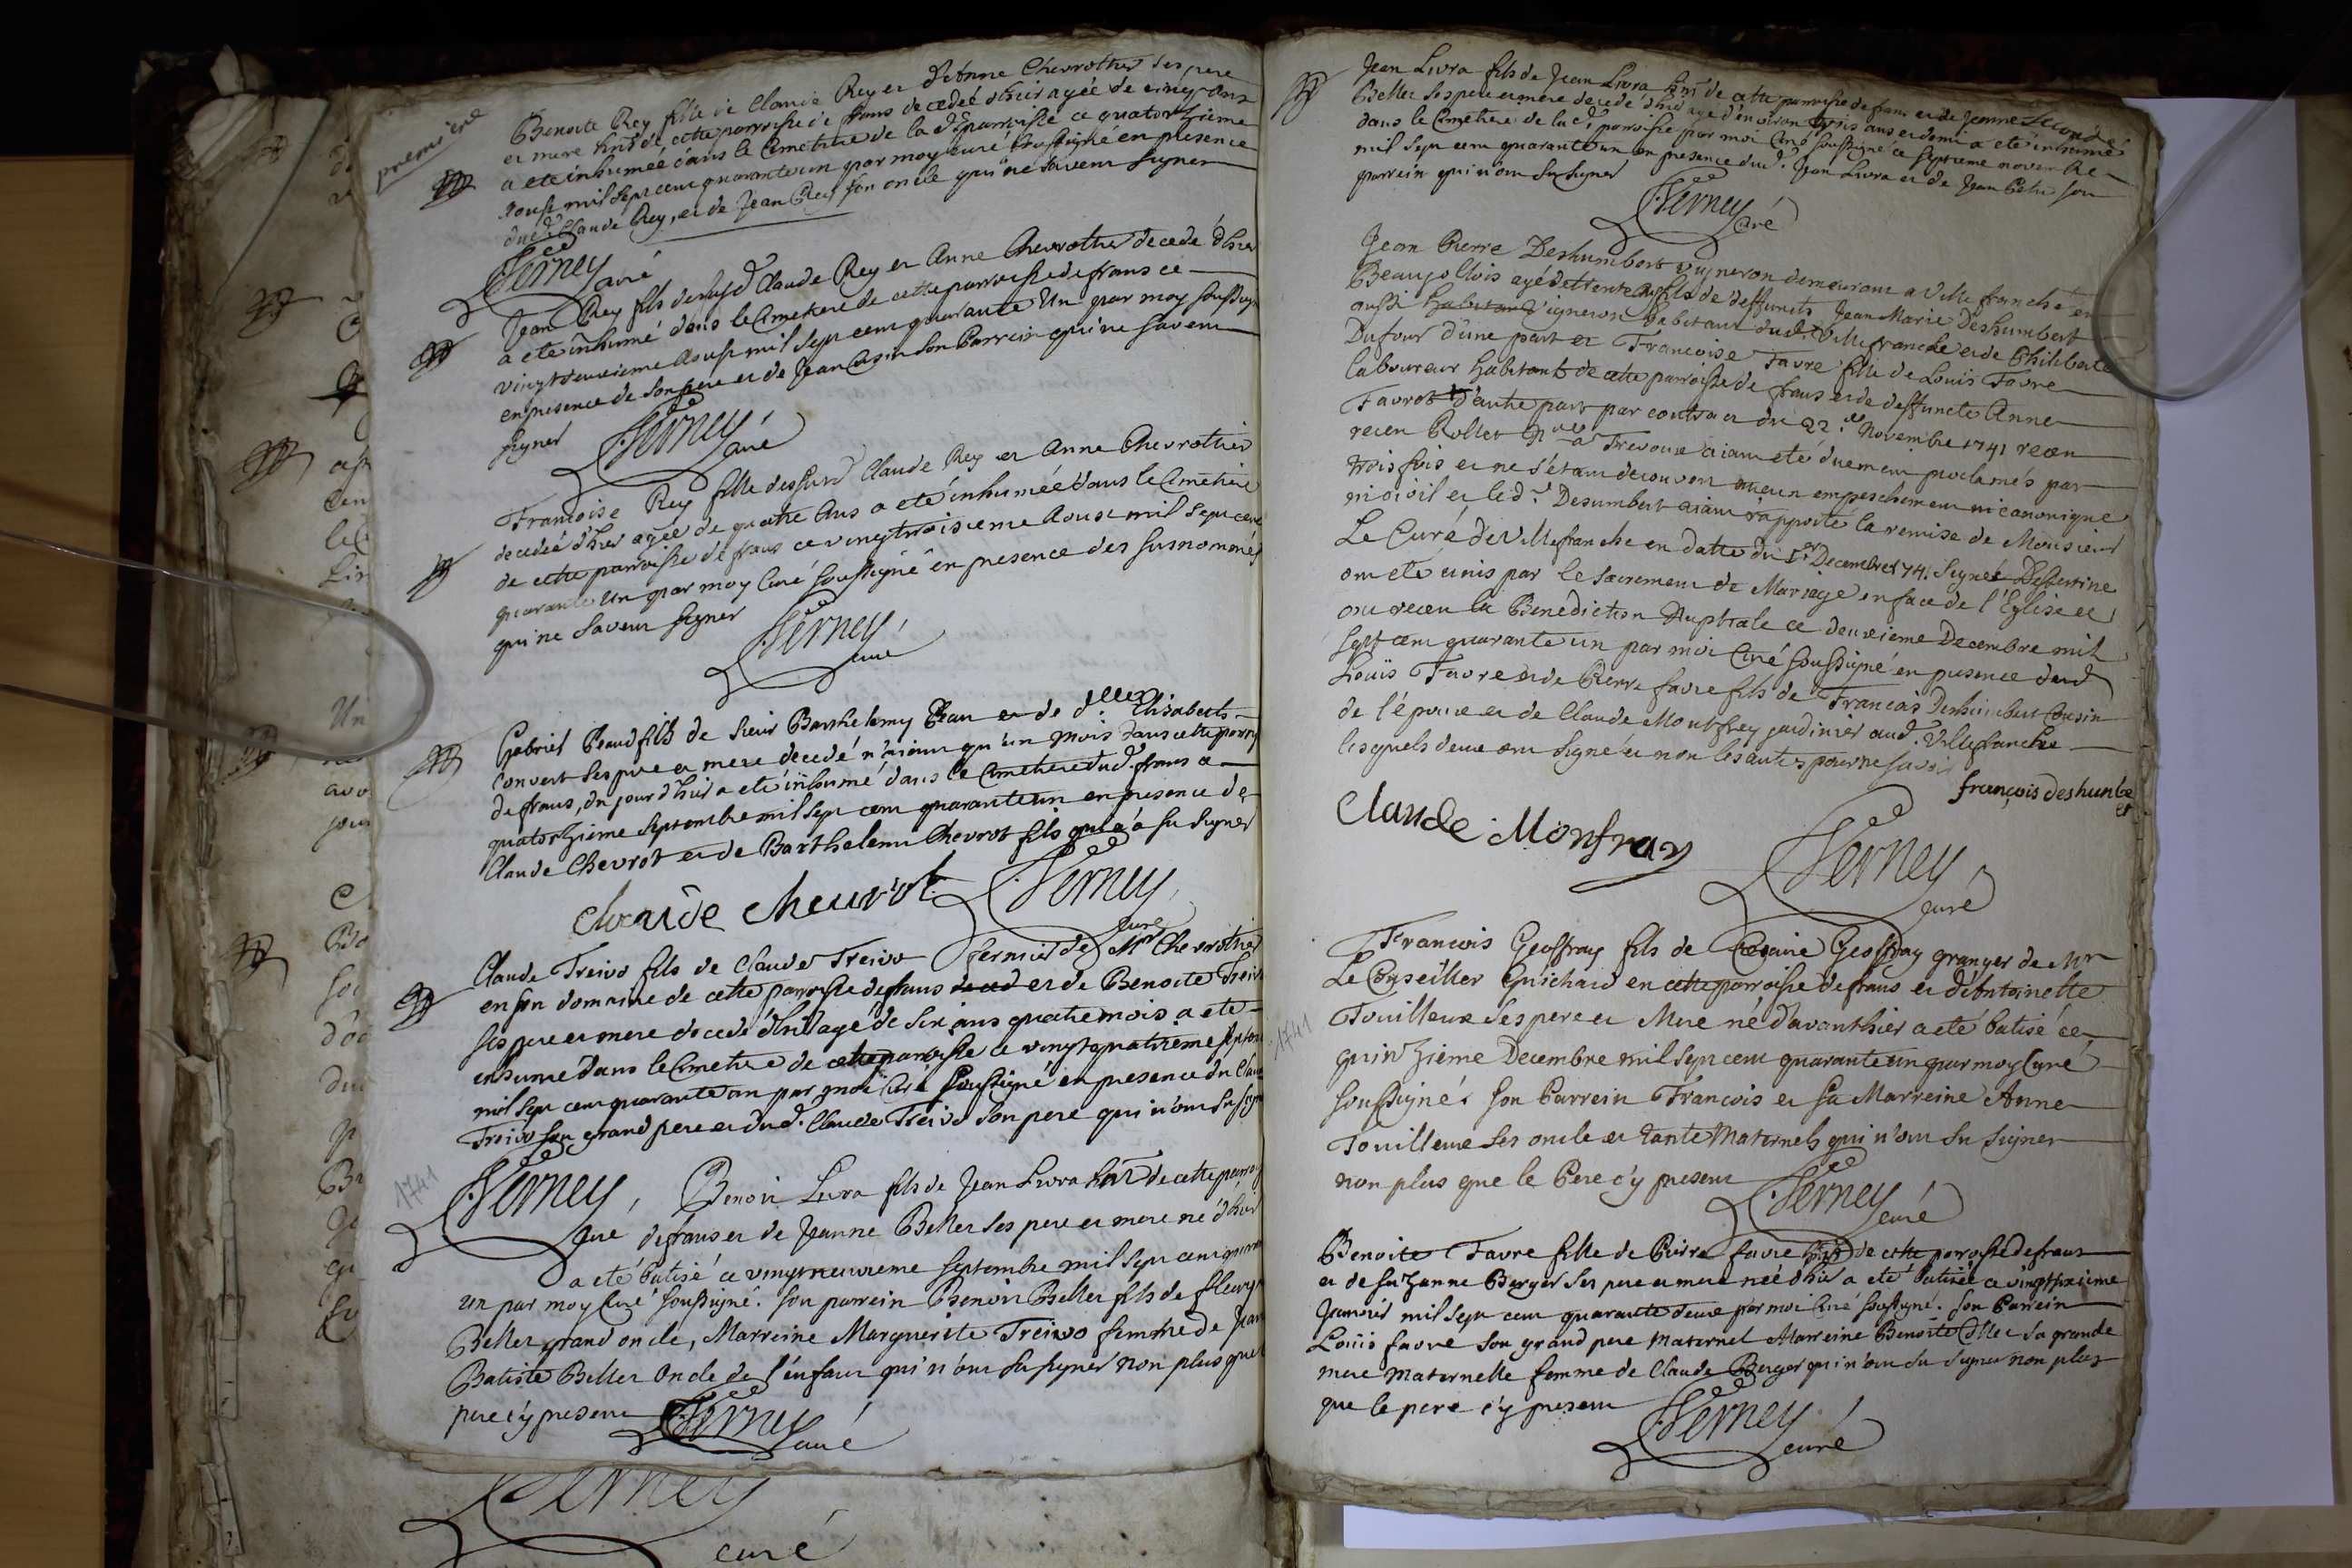 premier
Benoite Rey fille de Claude Rey et d'Anne Chevrothier ses pere
et mere de cette parroisse de frans decedeé d'hier ageé de cinq ans
a eté inhumeé dans le Cimetiere de la d. parroisse ce quatorzieme
aoust mil sept cent quarante un par moy curé soussigné en presence
dud. Claude Rey, et de Jean Rey son oncle qui ne savent signer
Verney curé
Jean Rey fils desusd. Claude Rey et Anne Chevrothier decedé d'hier
a eté inhumé dans le Cimetiere de cette parroisse de frans ce
vingt deuxieme Aoust mil sept cent quarante Un par moy soussigné
en presence de son pere et de Jean son Parrein qui ne savent
signer
Verney curé
Francoise Rey fille desusd. Claude Rey et Anne Chevrothier
decedeé d'hier ageé de quatre Ans a eté inhumeé dans le Cimetiere
de cette parroisse de frans ce vingtroisieme Aoust mil sept cent
quarante Un par moy Curé soussigné en presence des susnommés
qui ne savent signer
Verney curé
Gabriel Beaud fils de sieur Barthelemy Beau et de d.elle Elisabeth
Convert ses pere et mere decedé n'aiant qu'un mois dans cette parr
de frans, du jour d'hier a eté inhumé dans le Cimetiere dud. frans ce
quatorzieme septembre mil sept cent quarante un en presence de
Claude Chevrot et de Barthelemi Chevrot fils qui a su signer
claude cheuvrot Verney
curé
Claude Treivo fils de Claude Treivo fermier de Mr. Chevrothier
en son domaine de cette parroisse de frans et de Benoite Treivo
ses pere et mere decedé d'hier agé de six ans quatre mois a eté
inhumé dans le Cimetiere de cette parroisse ce vingtquatrieme septembre
mil sept cent quarante un par moi Curé soussigné en presence de Claude
Treivo son grand pere et dud. Claude Treivo son pere qui n'ont su signer
1741
Verney, Benoit Livra fils de Jean Livra hnt de cette parroi
curé de frans et de Jeanne Beller ses pere et mere né d'hier
a eté batisé ce vingtneuvieme septembre mil sept cent quarante
un par moy Curé soussigné. son parrein Benoit Beller fils de fleury
Beller grand oncle, Marreine Marguerite Treivo femme de Jean
Batiste Beller Oncle de l'enfant qui n'ont su signer non plus que
pere c'y present Verney curé
Verney
curé
Jean Livra fils de Jean Livra hnt de cette parroisse de frans et de Jeanne
Beller ses pere et mere decedé d'hier agé d'environ trois ans et demi a eté inhumé
dans le Cimetiere de lad. parroisse par moi Curé soussigné ce septieme novembre
mil sept cent quarante un en presence dud. Jean Livra et de Jean son
parrein qui n'ont su signer
Verney curé
Jean Pierre Deshumbert vigneron demeurant a Villefranche en
Beaujollois agé de trente fils de deffunts Jean Marie Deshumbert
aussi habitant Vigneron habitant dud. Villefranche et de Philiberte
Dufour d'une part et Francoise Favre fille de Louïs Favre
laboureur habitant de cette parroisse de frans et de deffuncte Anne
Favrot d'autre part par contract du 22.e Novembre 1741 receu
receu Rollet N.re a Trevoux aiant eté duement proclamés par
trois fois et ne s'étant decouvert aucun empeschement ni canonique
ni civil et led. Desumbert aiant rapporté la remise de Monsieur
Le Curé de Villefranche en datte du 1.er Decembre 1741 signeé Dessertine
ont eté unis par le sacrement de Mariage en face de l'Eglise et
ont receu la Benediction Nuptiale ce deuxieme Decembre mil
sept cent quarante un par moi Curé soussigné en presence dud.
Louïs Favre et de Pierre favre fils de Francois Deshumbert Cousin
de l'époux et de Claude Montfrey jardinier aud. Villefranche
lesquels deux ont signé et non les autres pour ne savoir
françois deshumbe
rt
Claude Monfray Verney
curé
1741
Francois Geoffray fils de Cesaire Geoffray granger de Mr
Le Conseiller Guichard en cette parroisse de frans et d'Antoinette
Touilleux ses pere et Mere né d'avanthier a eté batisé ce
quinzieme Decembre mil sept cent quarante un par moy Curé
soussigné. son Parrein Francois et sa Marreine Anne
Touilleux ses oncle et tante Maternels qui n'ont su signer
non plus que le Pere c'y present Verney
curé
Benoite Favre fille de Pierre favre hnt de cette parroisse de frans
et de Suzanne Berger ses pere et mere neé d'hier a eté batiseé ce vingtsixieme
Janvier mil sept cent quarante deux par moi Curé soussigné. son Parrein
Louïs favre son grand pere maternel Marreine Benoite sa grande
mere maternelle femme de Claude Berger qui n'ont su signer non plus
que le pere c'y present Verney
curé